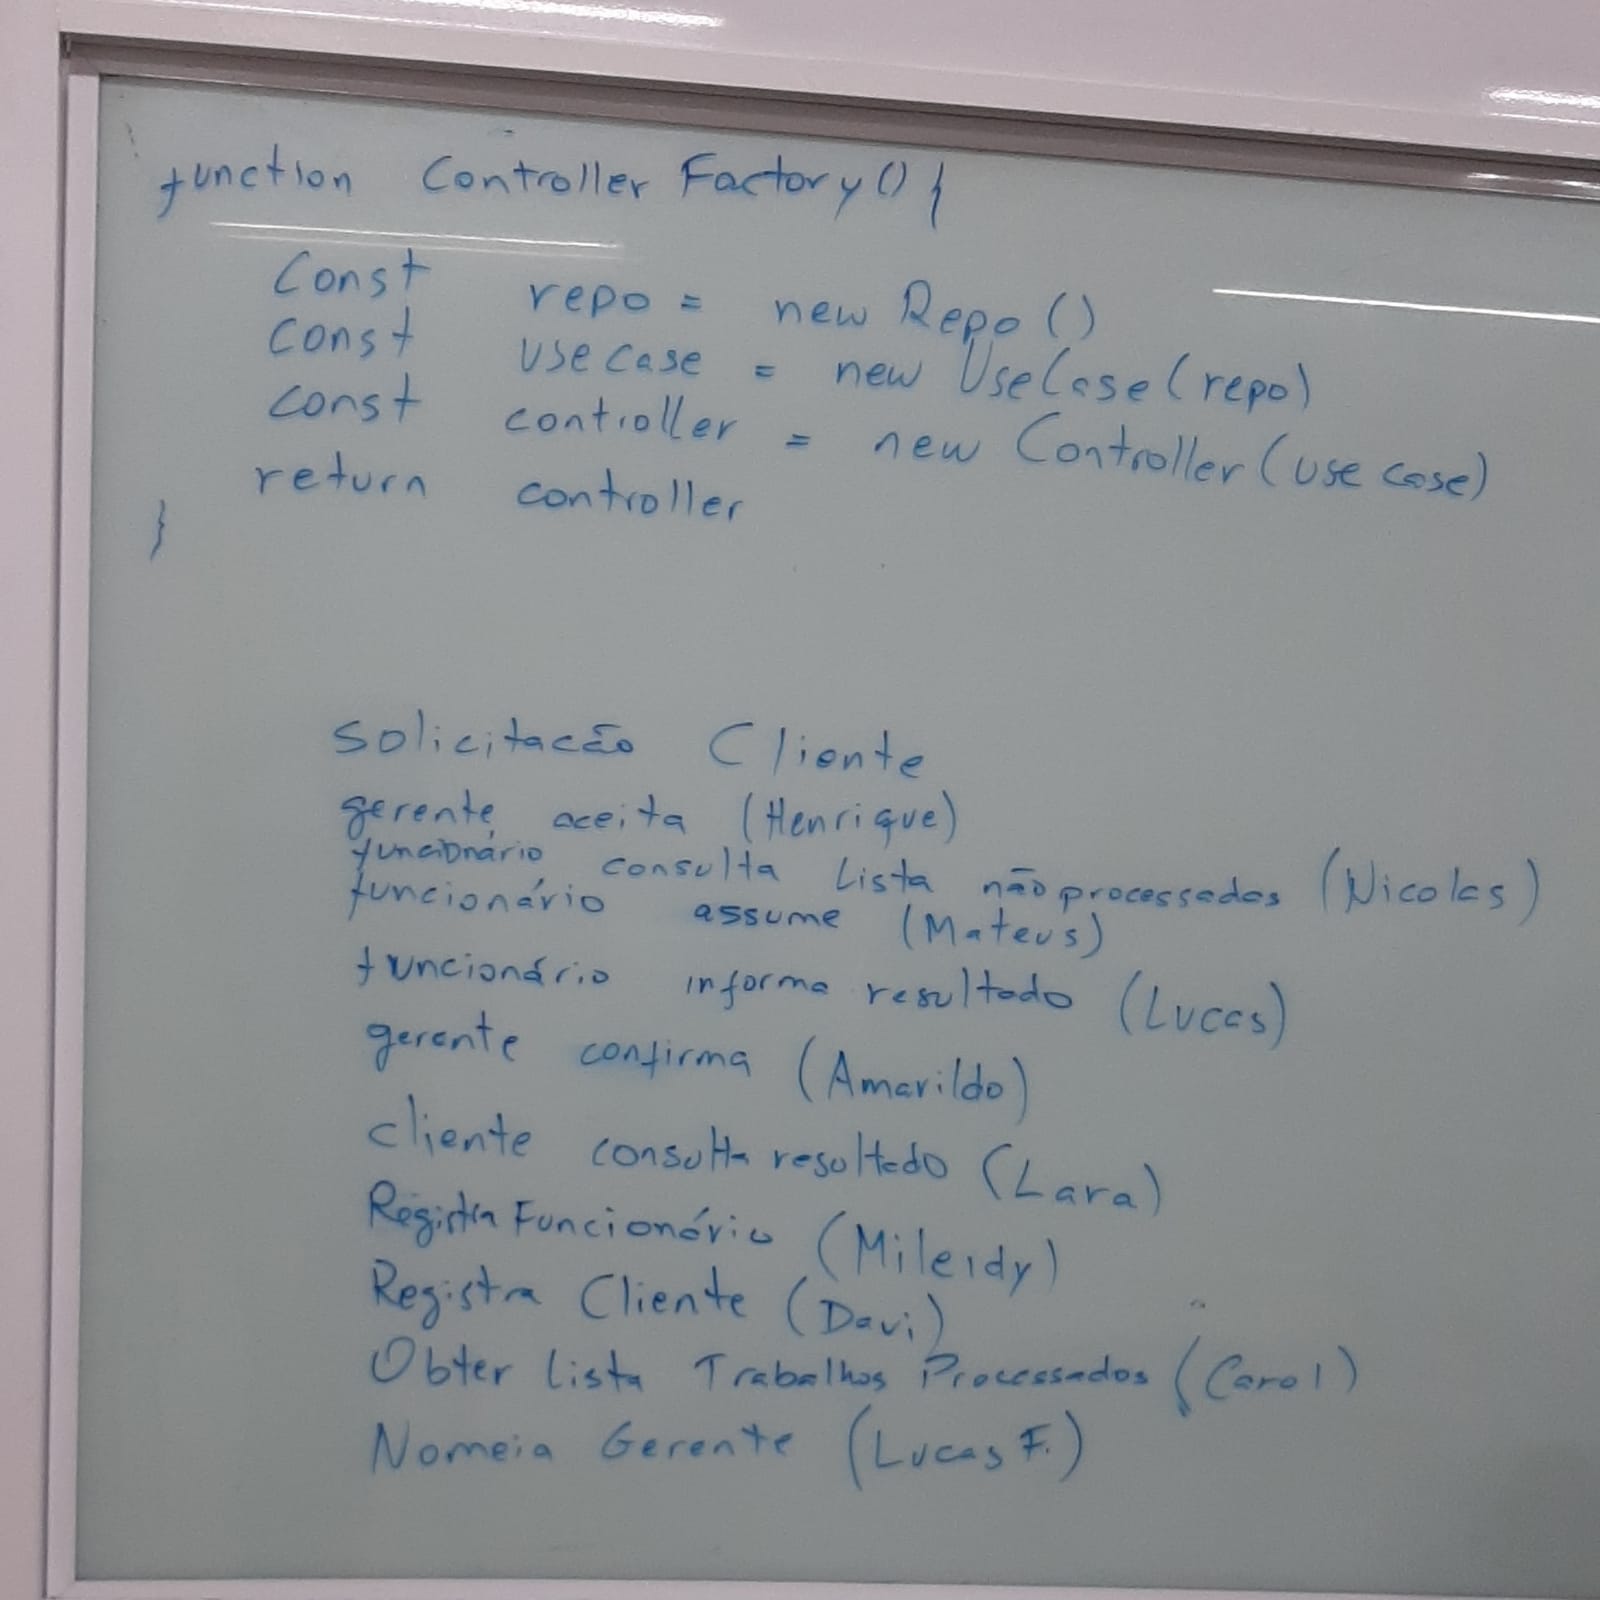 function Controller Factory() {
Const repo = new Repo ()
const usecase = new UseCase (repo)
const controller = new Controller (use case)
return controller
}
Solicitacão Cliente
gerente aceita (Henrique)
funcionário consulta Lista não processados (Nicolas)
funcionário assume (Mateus)
funcionário informa resultado (Lucas)
gerente confirma (Amarildo)
cliente consulta resultado (Lara)
Registra Funcionário (Mileidy)
Registra Cliente (Davi)
Obter Lista Trabalhos Processados (Carol)
Nomeia Gerente (Lucas F.)